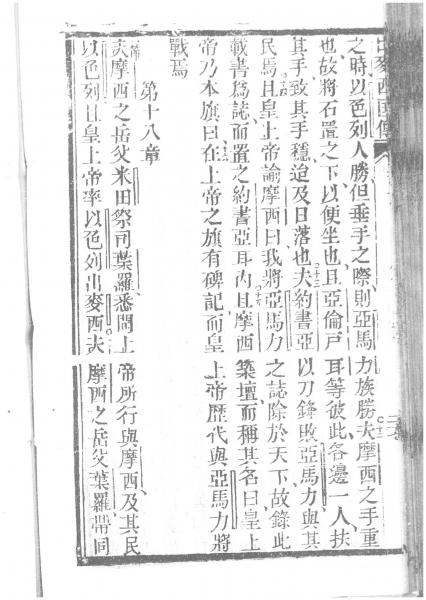 出麥西國傳
之時以色列人勝但垂手之際則亞馬力族勝夫摩西之手重
也故將石置之下以便坐也且亞倫戶耳等彼此各邊一人扶
其手致其手穩迨及日落也十三夫約書亞以刀鋒敗亞馬力與其
民焉十四且皇上帝諭摩西曰我將亞馬力之誌除於天下故錄此
載書爲誌而置之約書亞耳內且摩西築壇而稱其名曰皇上
帝乃本旗曰在上帝之旗有碑記而皇上帝歷代與亞馬力將
戰焉
第十八章
夫摩西之岳父米田祭司葉羅悉聞上帝所行與摩西及其民
以色列且皇上帝率以色列出麥西夫摩西之岳父葉羅帶同